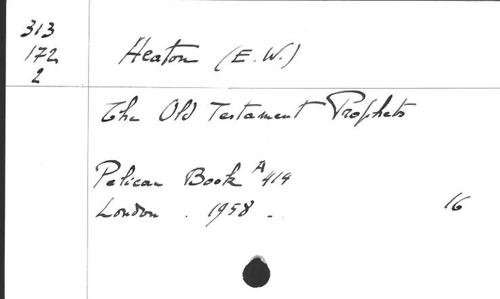 313
172
2
Heaton (E.W.)
The Old Testament Prophets
Pelican Book A 414
London . 1958 .
16